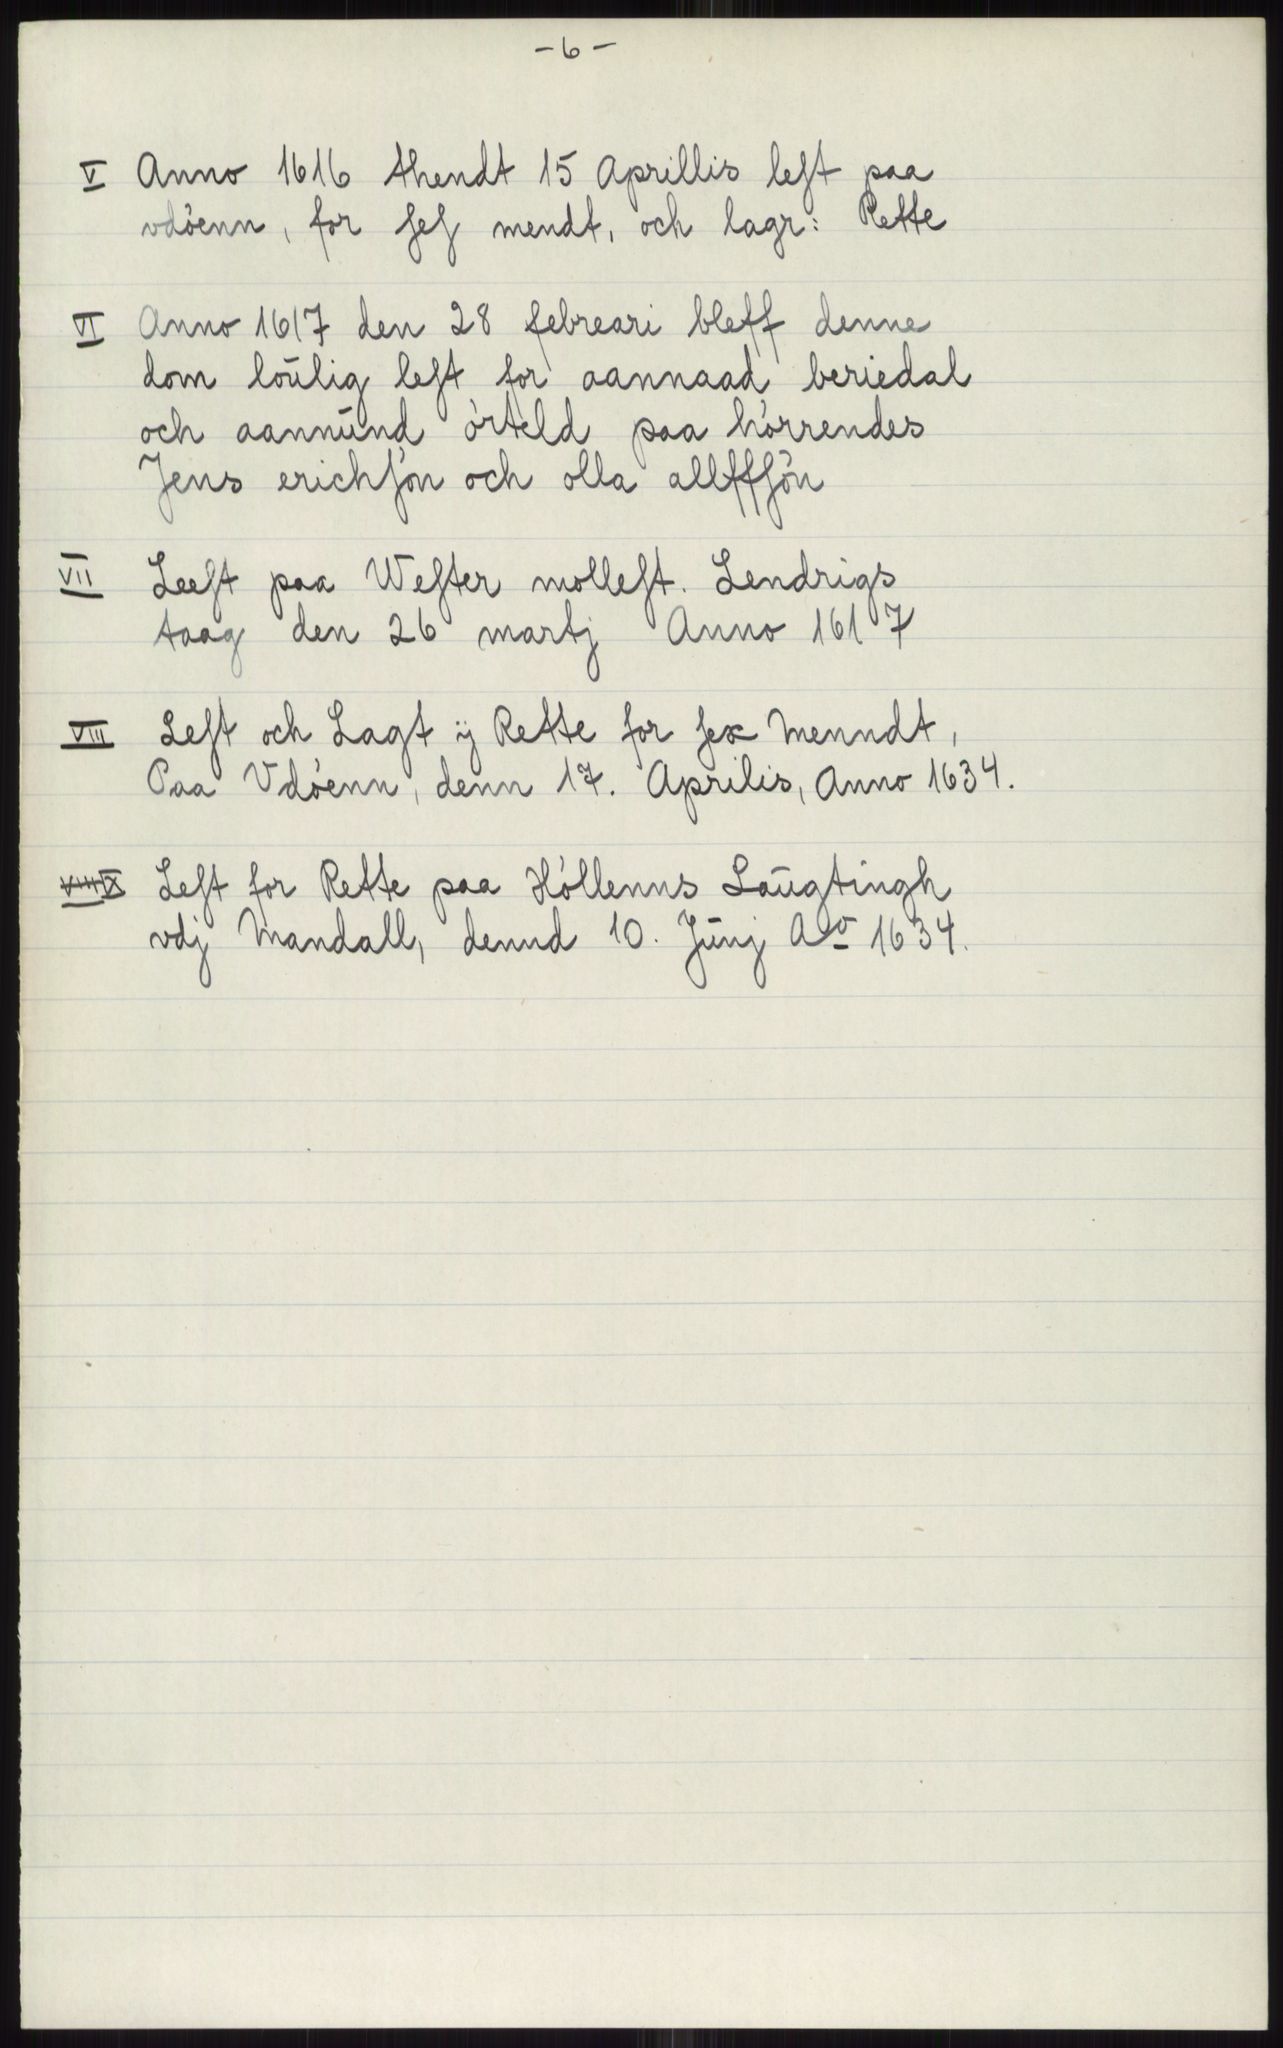 - 6 -
V Anno 1616 thendt 15 Aprillis leſt paa
vdòenn, for ſeſ mendt, och lagr: Rette
VI Anno 1617 den 28 febreari bleff denne
dom loŭlig leſt for aannaad beriedal
och aannŭnd òrteld paa hòrrendes
Jens erichſòn och olla allffſòn
VII Leeſt paa Weſter molleſt. Lendrigs
taag den 26 martj Anno 1617
VIII Leſt och Lagt ÿ Rette for ſex Menndt,
Paa Vdòenn, denn 17. Aprilis, Anno 1634.
IX Leſt for Rette paa Hòllenns Laŭgtingh
vdj Mandall, dennd 10. Jŭnj Aº 1634.